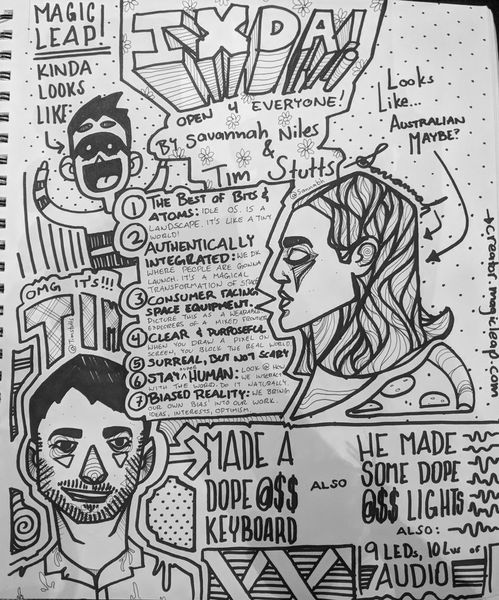 MAGIC
LEAP!
KINDA
LOOKS
LIKE:
IXDA!
OPEN 4 EVERYONE!
BY Savannah Niles
&
Tim Stutts
Looks
Like...
AUSTRALIAN
MAYBE?
→ creator.magicleap.com
1 THE BEST OF BITS &
ATOMS: IDLE OS. IS A
LANDSCAPE. IT'S LIKE A TINY
WORLD!
2 AUTHENTICALLY
INTEGRATED: WE DK
WHERE PEOPLE ARE GONNA
LAUNCH. IT'S A MAGICAL
TRANSFORMATION OF SPACE
3 CONSUMER FACING
SPACE EQUIPMENT.
PICTURE THIS AS A WEARABLE
EXPLORERS OF A MIXED FRONTIER
4 CLEAR & PURPOSEFUL
WHEN YOU DRAW A PIXEL ON
SCREEN, YOU BLOCK THE REAL WORLD.
5 SURREAL, BUT NOT SCARY
6 STAY HUMAN: LOOK @ HOW
WE INTERACT
WITH THE WORLD. DO IT NATURALLY.
7 BIASED REALITY: WE BRING
OUR OWN BIAS INTO OUR WORK.
IDEAS, INTERESTS, OPTIMISM.
OMG IT'S!!!
TIM
MADE A
DOPE @$$
KEYBOARD
ALSO
HE MADE
SOME DOPE
@$$ LIGHTS
ALSO:
9 LEDs, 10 Lvs of
AUDIO